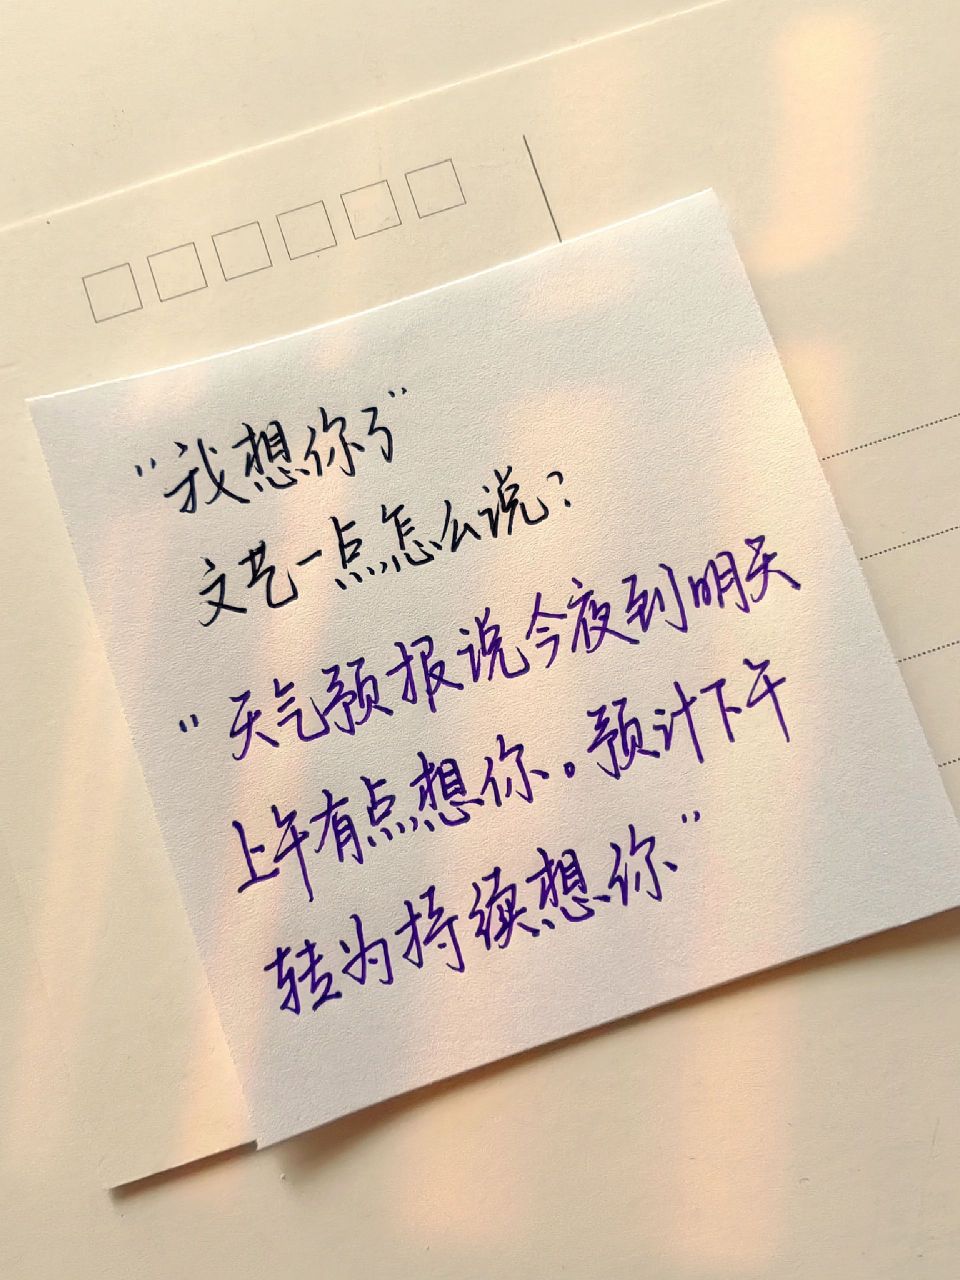 "我想你了"
文艺一点怎么说?
"天气预报说今夜到明天
上午有点想你。预计下午
转为持续想你"